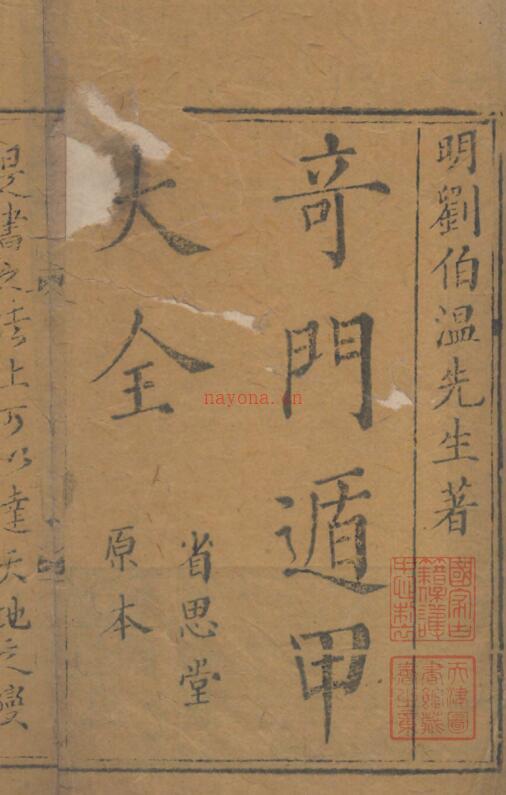 明劉伯溫先生著
竒門遁甲
大全
省思堂
原本
是書之法上可以達天地之變
nayona.cn
國家古籍保護中心制
天津圖書館藏